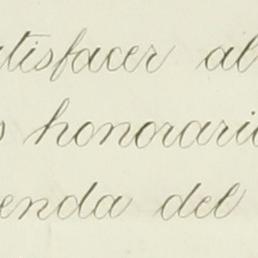 atisfacer al
s honorario
enda del